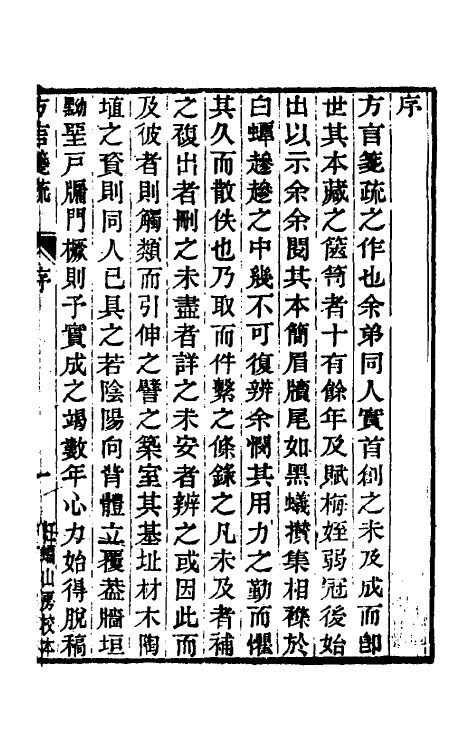 序
方言箋疏之作也余弟同人實首創之未及成而卽
世其本藏之篋笥者十有餘年及賦梅姪弱冠後始
出以示余余閱其本簡眉牘尾如黑蟻攢集相襍於
白蟫趁趁之中幾不可復辨余憫其用力之勤而懼
其久而散佚也乃取而件繫之條錄之凡未及者補
之複出者刪之未盡者詳之未安者辨之或因此而
及彼者則觸類而引伸之譬之築室其基址材木陶
埴之資則同人已具之若陰陽向背體立覆葢牆垣
黝堊戶牖門橛則予實成之竭數年心力始得脫稿
方言箋疏 序 一 山房校本